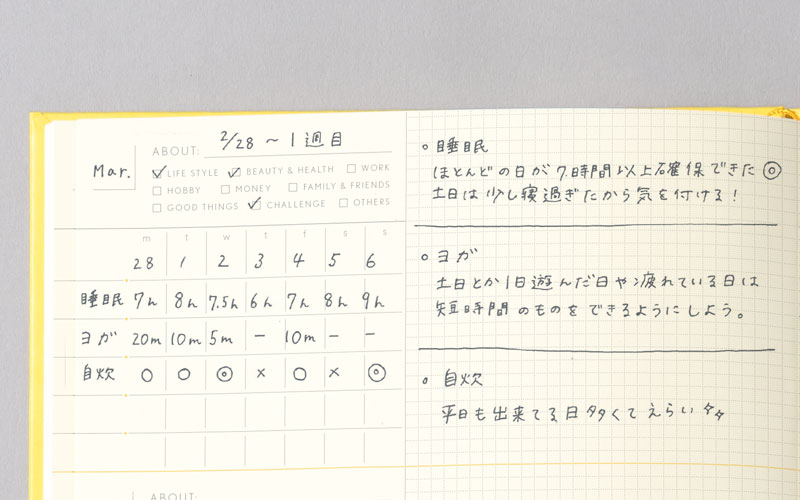 Mar.
ABOUT: 2/28 〜 1週目
LIFE STYLE BEAUTY & HEALTH WORK
HOBBY MONEY FAMILY & FRIENDS
GOOD THINGS CHALLENGE OTHERS
m t w t f s s
28 1 2 3 4 5 6
睡眠 7h 8h 7.5h 6h 7h 8h 9h
ヨガ 20m 10m 5m − 10m − −
自炊 ○ ○ ◎ × ○ × ◎
ABOUT:
○ 睡眠
ほとんどの日が7時間以上確保できた◎
土日は少し寝過ぎたから気を付ける!
○ ヨガ
土日とか1日遊んだ日や疲れている日は
短時間のものをできるようにしよう。
○ 自炊
平日も出来てる日多くてえらい